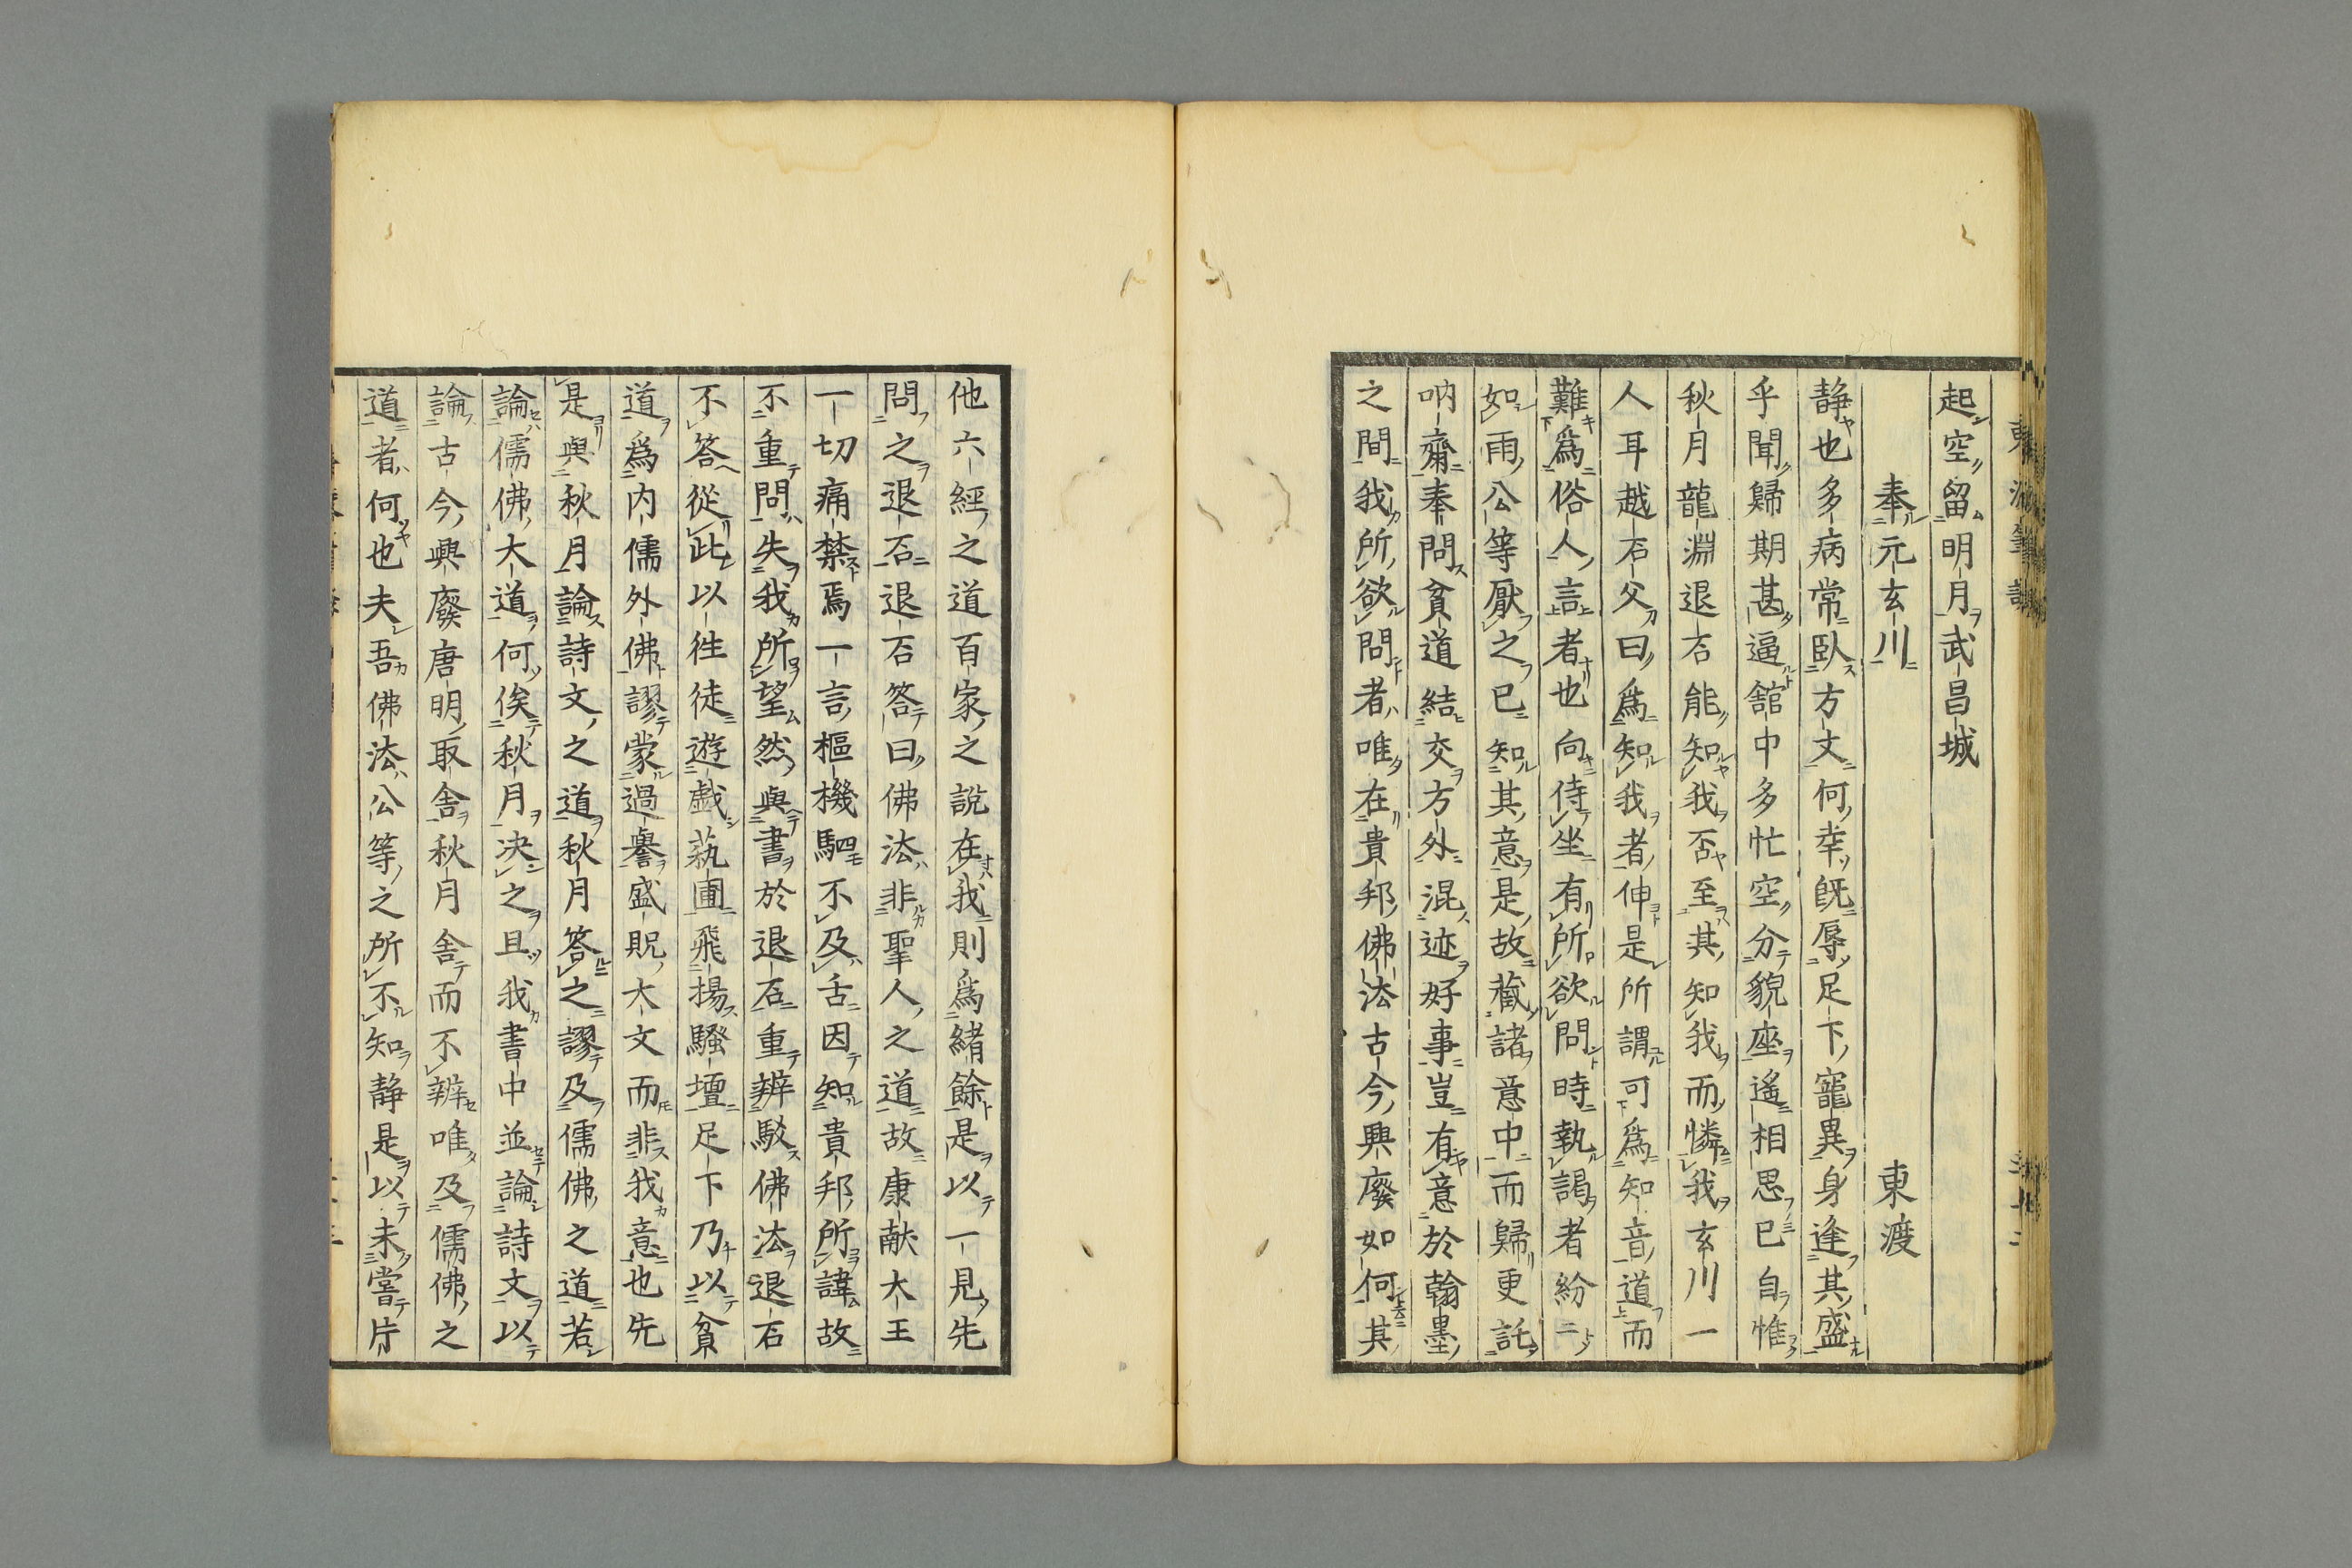 起空留明月武昌城
奉元玄川 東渡
静也多病常臥方丈何幸既辱足下寵異身逢其盛
乎聞歸期甚逼舘中多忙空分貌座遙相思已自惟
秋月龍淵退石能知我否至其知我而憐我玄川一
人耳越石父曰爲知我者伸是所謂可爲知音道而
難爲俗人言者也向侍坐有所欲問時執謁者紛〻
如雨公等厭之已知其意是故藏諸意中而歸更託
吶齋奉問貧道結交方外混迹好事豈有意於翰墨
之間我所欲問者唯在貴邦佛法古今興廢如何其
他六經之道百家之說在我則爲緖餘是以一見先
問之退石退石答曰佛法非聖人之道故康献大王
一切痛禁焉一言樞機駟不及舌因知貴邦所諱故
不重問失我所望然與書於退石重辨駁佛法退石
不答從此以徃徒遊戯蓺圃飛揚騷壇足下乃以貧
道爲内儒外佛謬蒙過譽盛貺大文而非我意也先
是與秋月論詩文之道秋月答之謬及儒佛之道若
論儒佛大道何俟秋月决之且我書中並論詩文以
論古今興廢唐明取舎秋月舎而不辨唯及儒佛之
道者何也夫吾佛法公等之所不知静是以未嘗片